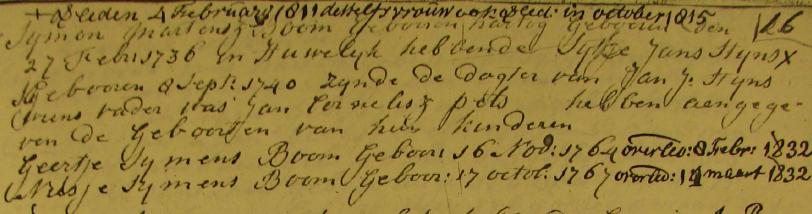 + Overleden 4 February 1811 deszelfs vrouw ook overled: in october 1815
Symon Martensz Boom geboren den 126
27 Febr: 1736 in Huwelyk hebbende Sytje Jans Styns x
Gebooren 8 Sept: 1740 zynde de dogter van Jan J. Styns
wiens vader was Jan Cornelisz pols hebben aengege-
ven de Geboorten van hun kinderen
Geertje Symens Boom Geboor: 16 Nov: 1764 overled: 8 Febr: 1832
Niesje Symens Boom Geboor: 17 octob: 1767 overled: 14 maart 1832